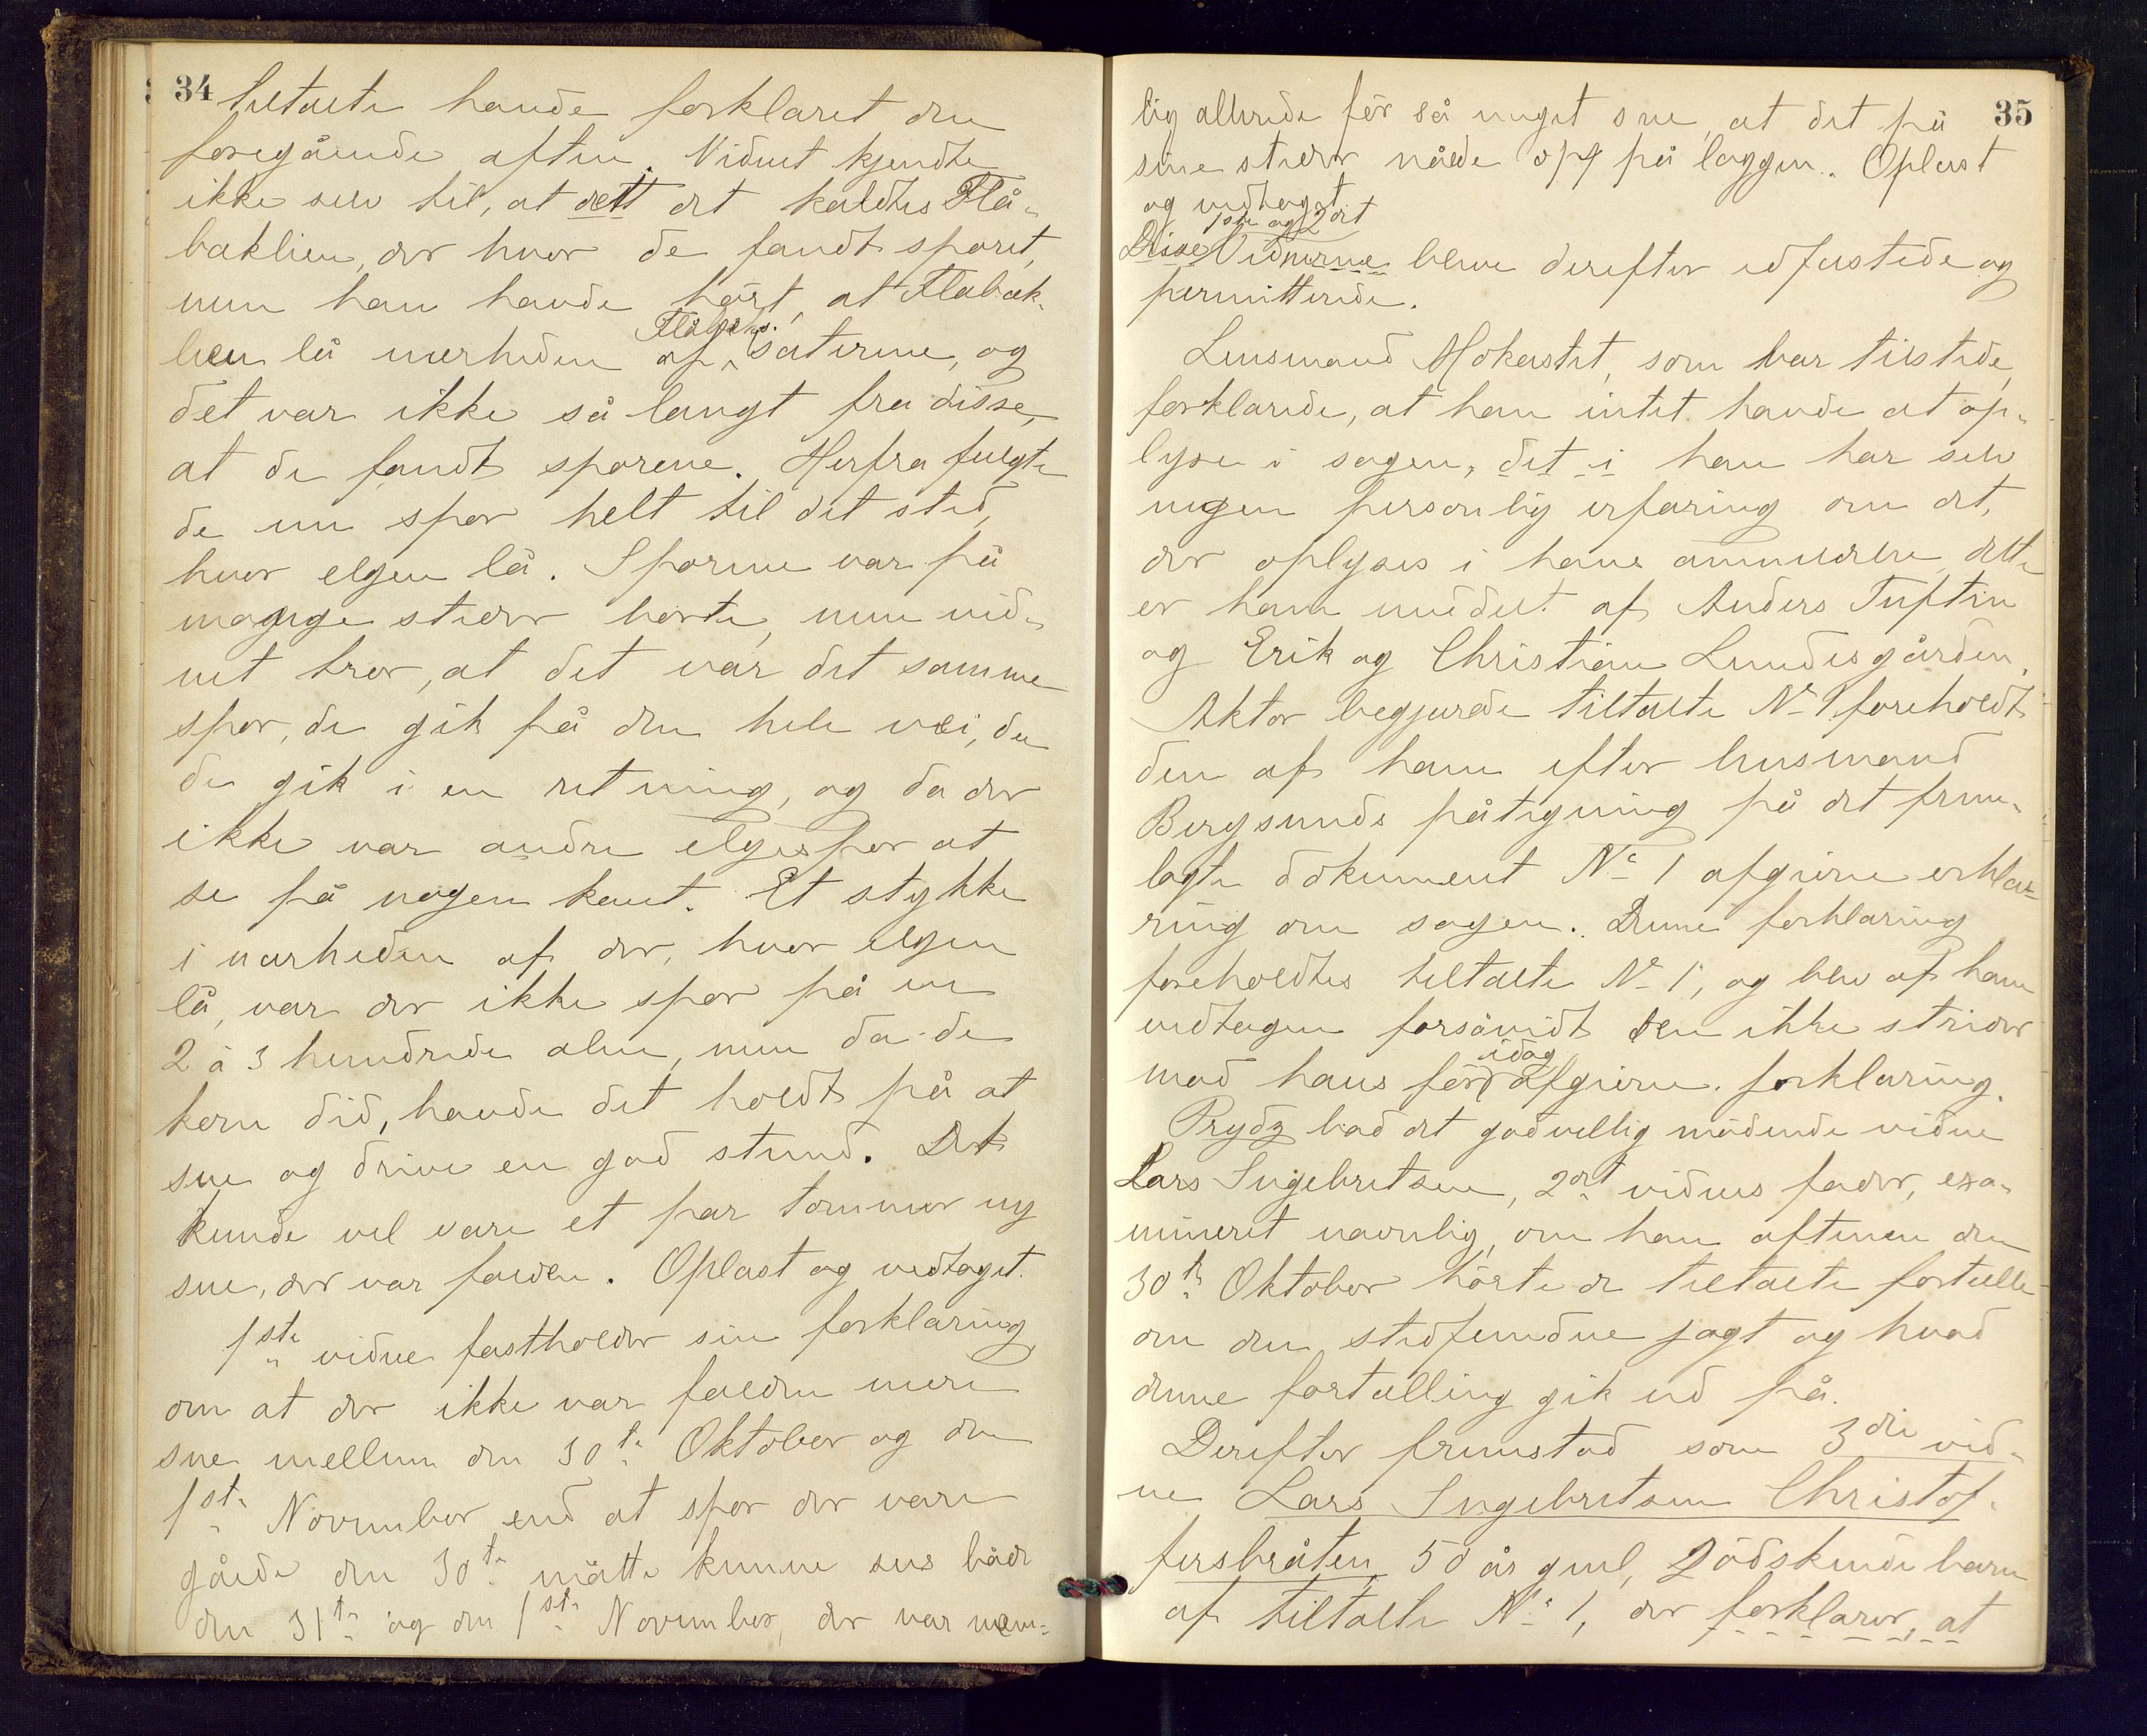 34
tiltalte havde forklaret den
foregående aften. Vidnet kjendte
ikke selv til, at dette det kaldtes Flå-
baklien, der hvor de fandt sporet,
men han havde hørt, at Flabak-
lien lå nærheden af Flåbaks. sæterne, og
det var ikke så langt fra disse,
at de fandt sporene. Herfra fulgte
de nu spor helt til det sted,
hvor elgen lå. Sporene var på
mange steder borte, men vid-
net tror, at det var det samme
spor, de gik på den hele vei, da
de gik i en retning, og da der
ikke var andre elgespor at
se på nogen kant. Et stykke
i nærheden af der, hvor elgen
lå, var der ikke spor på en
2 à 3 hundrede alen, men da de
kom did, havde det holdt på at
sne og drive en god stund. Det
kunde vel være et par tommer ny
sne, der var falden. Oplæst og vedtaget.
1ste vidne fastholder sin forklaring
om at der ikke var falden mere
sne mellem den 30te Oktober og den
1ste November end at spor der vare
gåede den 30te måtte kunne sees både
den 31te og den 1ste November, der var nem-
35
lig allerede før så meget sne, at det på
sine steder nåede op på læggen. Oplæst
og vedtaget.
Disse 1ste og 2det Vidnerne bleve derefter edfæstede og
permitterede.
Lensmand Mokastet, som var tilstede,
forklarede, at han intet havde at op-
lyse i sagen, det i han har selv
ingen personlig erfaring om det,
der oplyses i hans anmeldelse, dette
er ham meddelt af Anders Tuften
og Erik og Christian Lundesgården.
Aktor begjærede tiltalte No 1 foreholdt
den af ham efter lensmand
Bergsunds påtegning på det frem-
lagte dokument No 1 afgivne erklæ-
ring om sagen. Denne forklaring
foreholdtes tiltalte No 1, og blev af ham
vedtagen forsåvidt den ikke strider
mod hans før idag afgivne forklaring.
Prydz bad det godvillig mødende vidne
Lars Ingebretsen, 2det vidnes fader, exa-
mineret navnlig, om han aftenen den
30te Oktober hørte de tiltalte fortælle
om den stedfundne jagt og hvad
denne fortælling gik ud på.
Derefter fremstod som 3die vid-
ne Lars Ingebretsen Christof-
fersbråten 50 år gml, Sødskendebarn
af tiltalte No 1, der forklarer, at